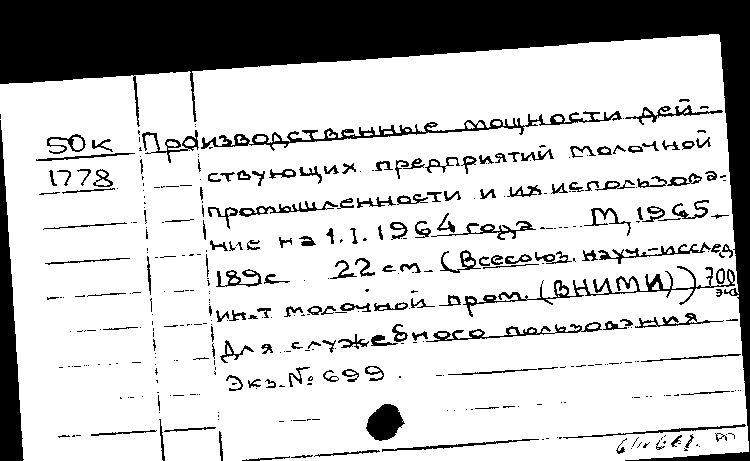 50к Производственные мощности дей-
1778 ствующих предприятий молочной
промышленности и их использова-
ние на 1.I.1964 года. М, 1965.
189с 22 см. (Всесоюз. науч.-исслед.
ин-т молочной пром. (ВНИМИ)). 700 экз
Для служебного пользования.
Экз. № 699.
РП